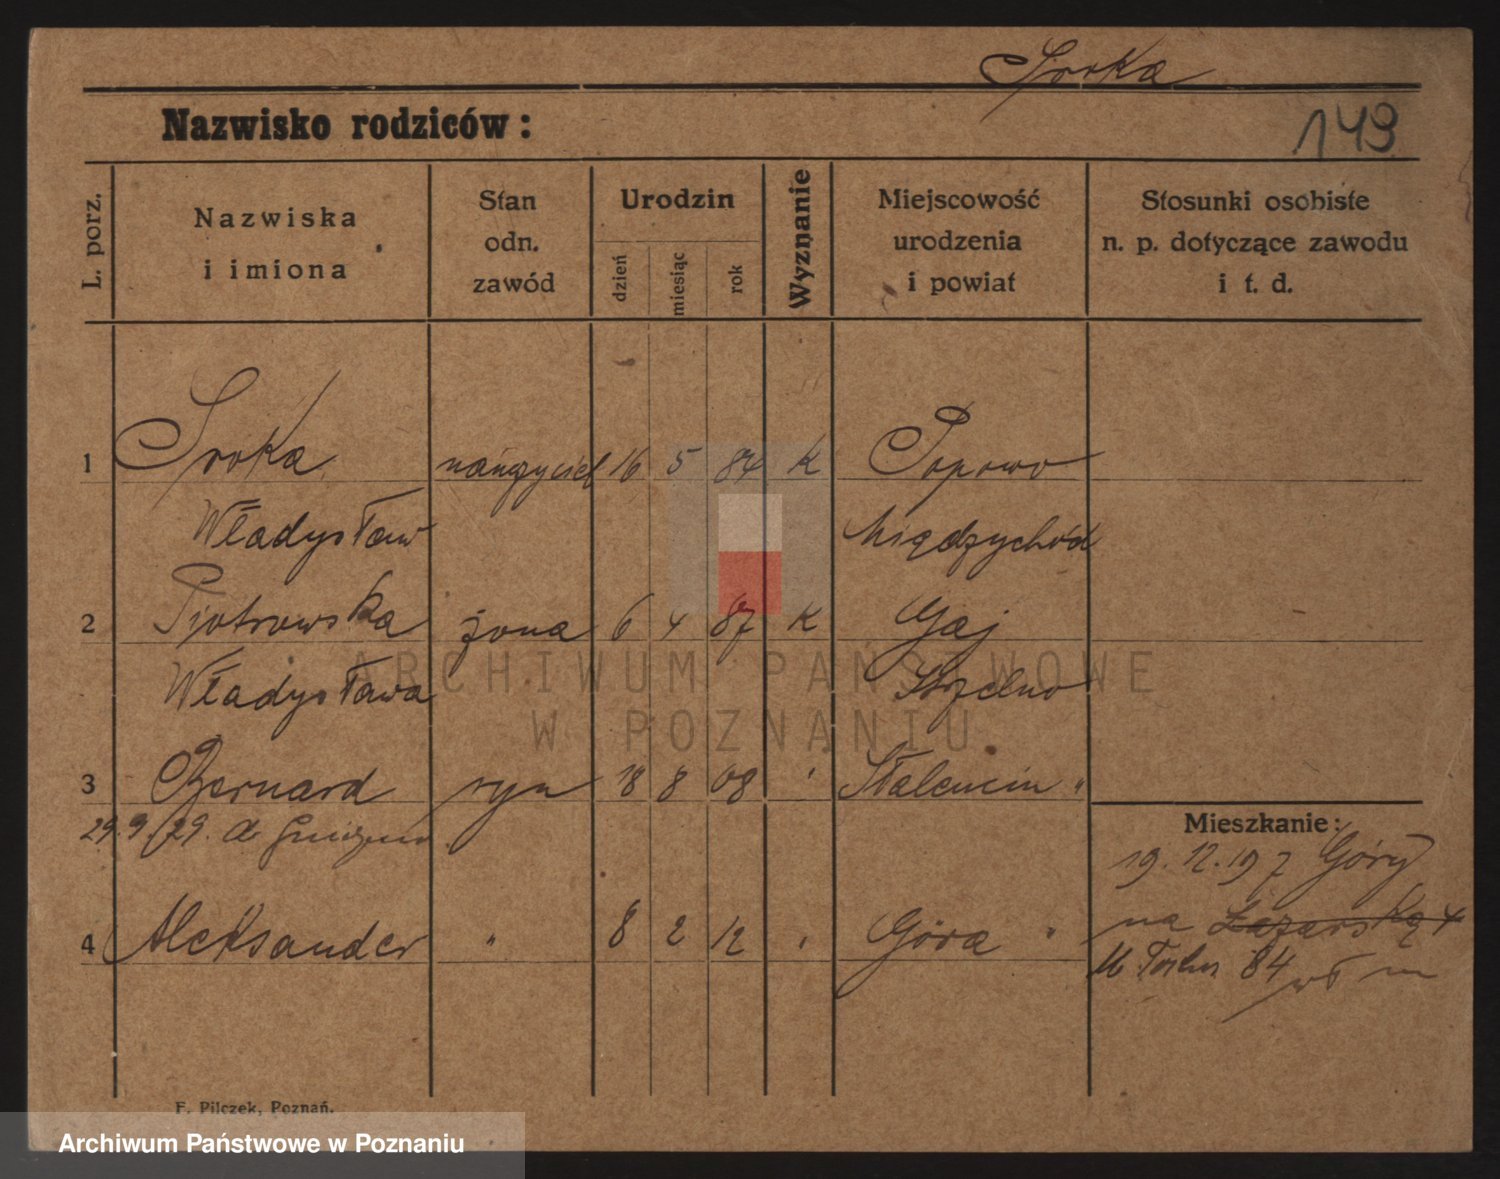 Sroka
Nazwisko rodziców:
149
L. porz.
Nazwiska
i imiona
Stan
odn.
zawód
Urodzin
dzień
miesiąc
rok
Wyznanie
Miejscowość
urodzenia
i powiat
Stosunki osobiste
n. p. dotyczące zawodu
i t. d.
1 Sroka nauczyciel 16 5 84 K Popowo
Władysław Międzychód
2 Piotrowska żona 6 4 87 K Gaj
Władysława Strzelno
3 Bernard syn 18 8 08 " "
29.9.29. do Gniezna
4 Aleksander " 8 2 12 " Góra "
Mieszkanie:
19.12.19 z Góry
na Łazarską 4
84
F. Pilczek, Poznań.
ARCHIWUM PAŃSTWOWE
W POZNANIU
Archiwum Państwowe w Poznaniu